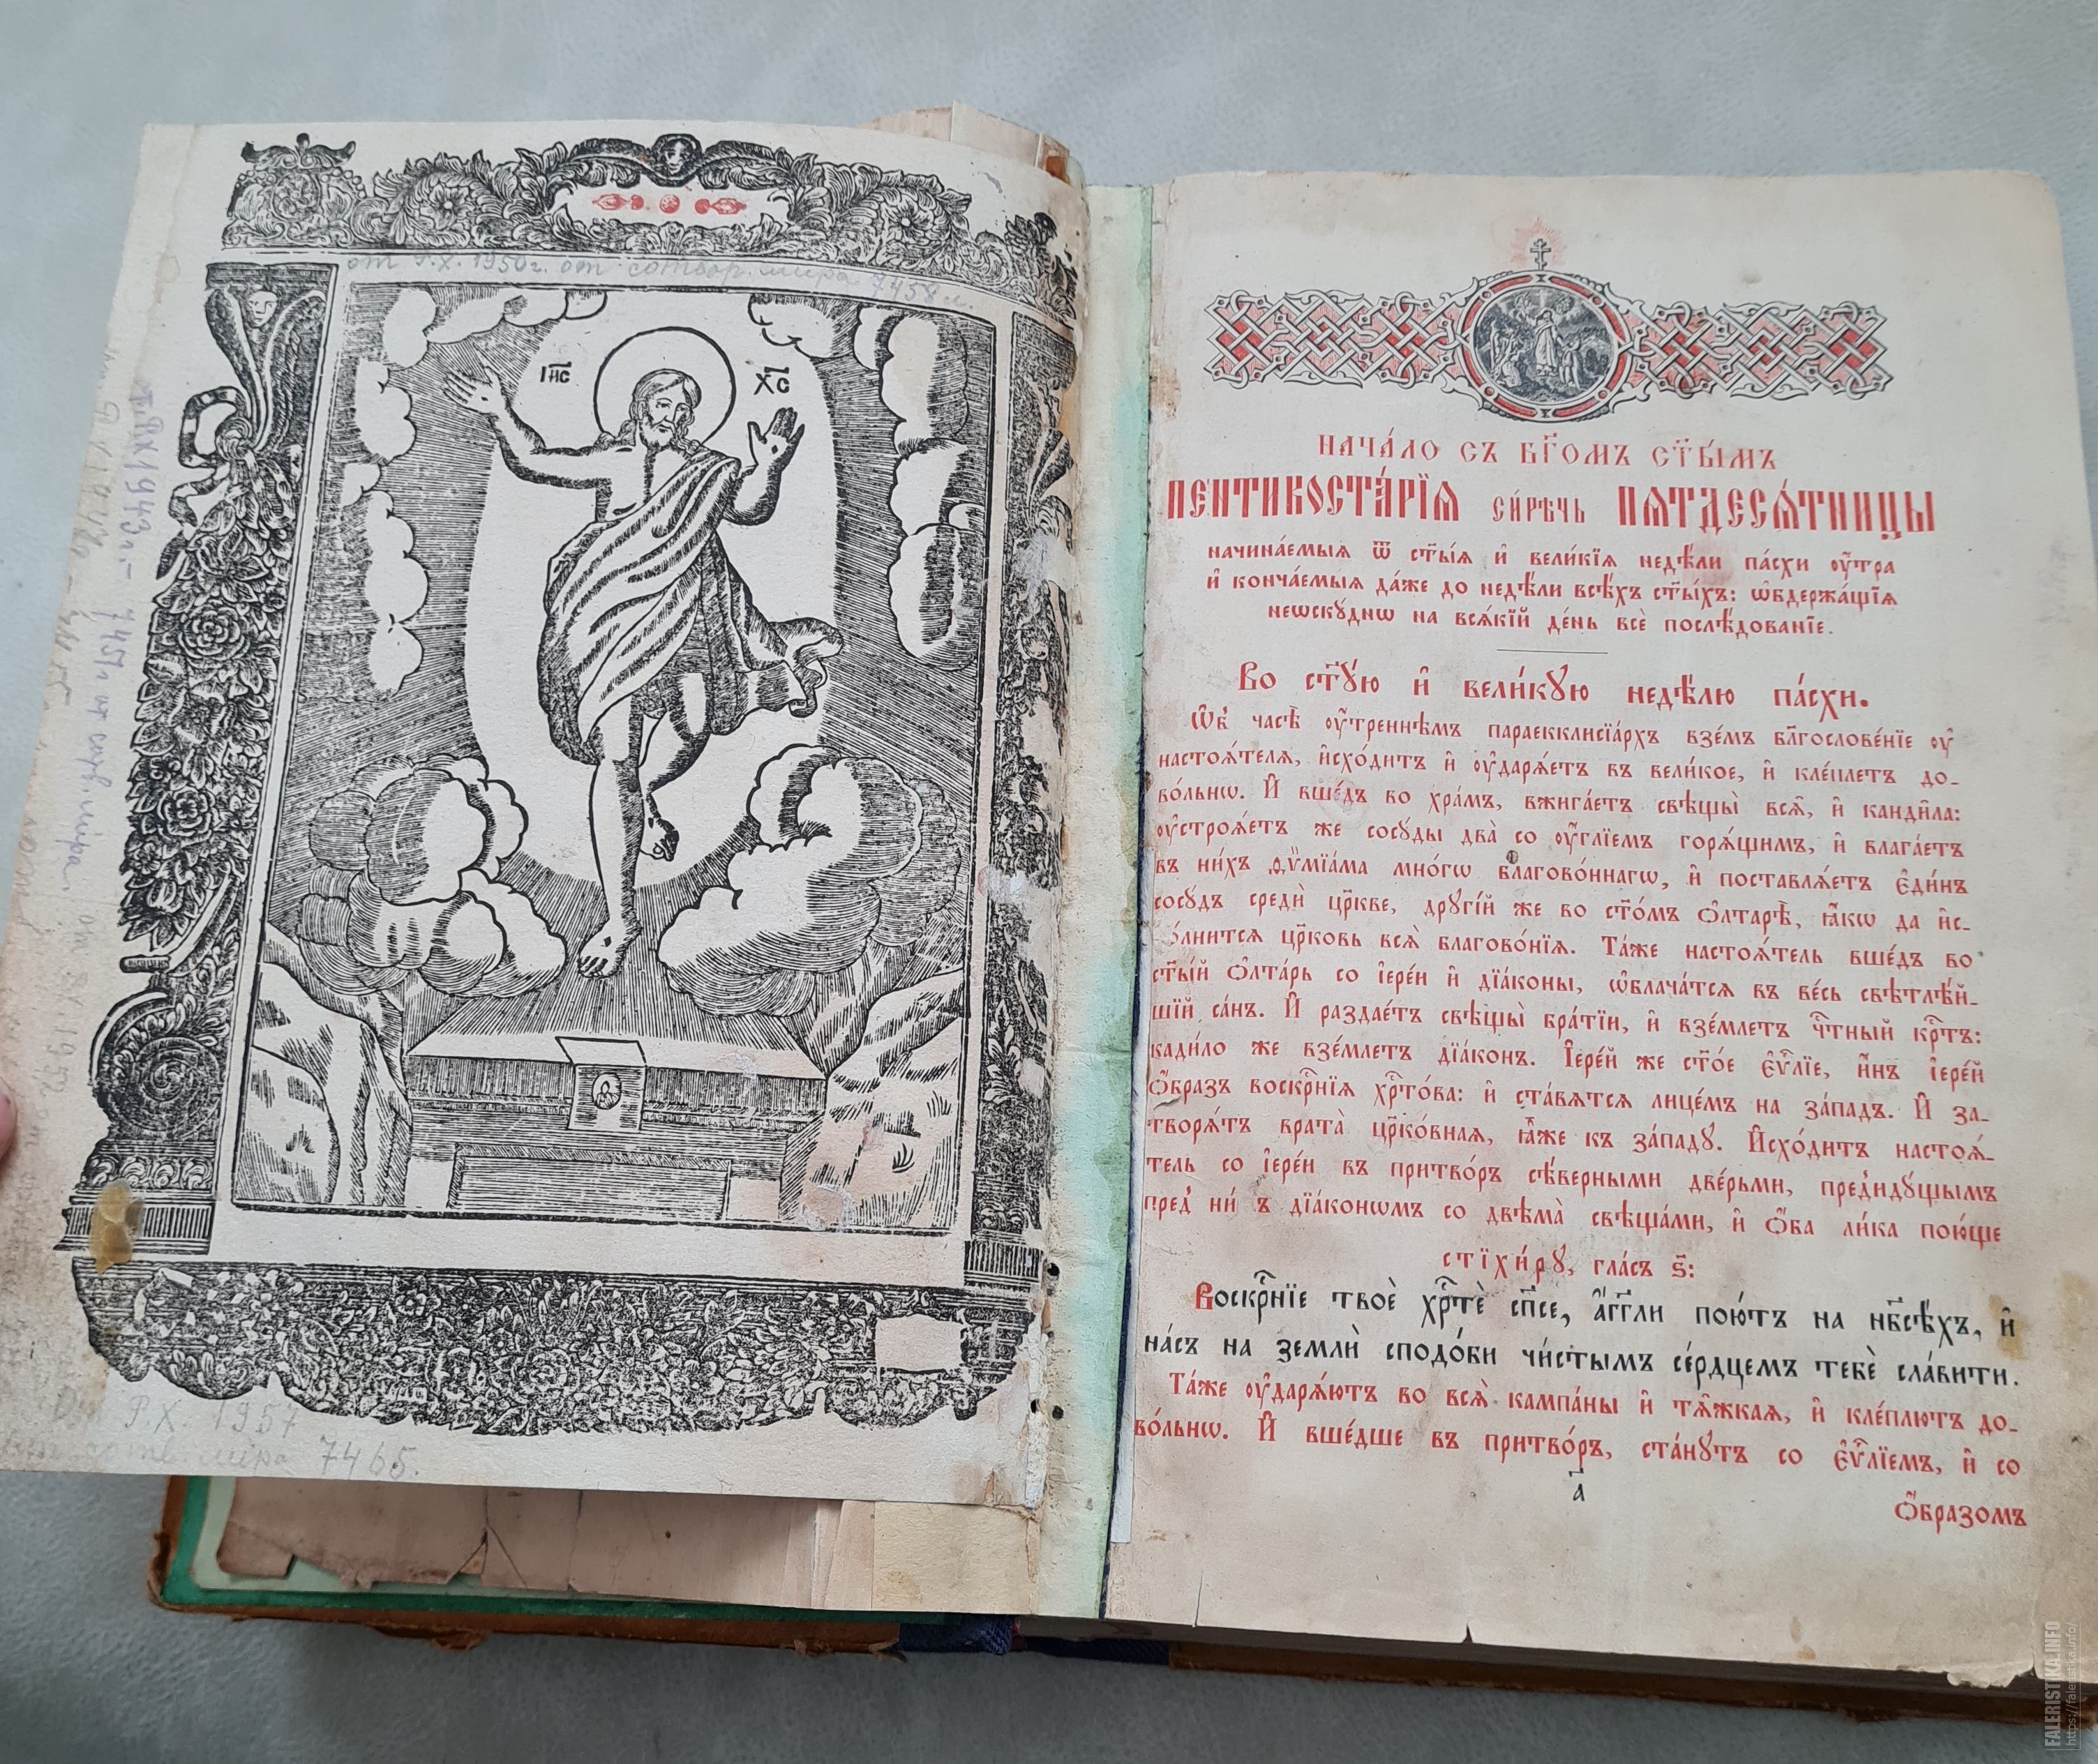 от Р.Х. 1950г. от сотвор. мира 7458 л.
І҆и҃с
Х҃с
Р Х 1943 л. 7451 от сотв. мира
Р Х. 1957
сотв мира 7465.
НАЧА́ЛО СЪ БГ҃ОМЪ СТ҃Ы́МЪ
ПЕНТИКОСТА́РЇѦ СИ́РѢЧЬ ПѦТДЕСѦ́ТНИЦЫ
начина́емыѧ ѿ ст҃ы́ѧ и҆ вели́кїѧ недѣ́ли па́схи ᲂу҆́тра
и҆ конча́емыѧ да́же до недѣ́ли всѣ́хъ ст҃ы́хъ: ѡ҆бдержа́щїѧ
неѡскꙋ́днѡ на всѧ́кїй де́нь всѐ послѣ́дованїе.
Во ст҃ꙋ́ю и҆ вели́кꙋю недѣ́лю па́схи.
Ѡ҆б̾ часѣ̀ ᲂу҆́треннѣмъ параекклисїа́рхъ взе́мъ блг҃ослове́нїе ᲂу҆
настоѧ́телѧ, и҆схо́дитъ и҆ ᲂу҆дарѧ́етъ въ вели́кое, и҆ кле́плетъ до-
во́льнѡ. И҆ вше́дъ во хра́мъ, вжига́етъ свѣщы̀ всѧ̑, и҆ канди̑ла:
ᲂу҆строѧ́етъ же сосꙋ́ды два̀ со ᲂу҆́глїемъ горѧ́щимъ, и҆ влага́етъ
въ ни́хъ ѳѷмїа́ма мно́гѡ благово́ннагѡ, и҆ поставлѧ́етъ є҆ди́нъ
сосꙋ́дъ средѝ цр҃кве, дрꙋгі́й же во ст҃о́мъ ѻ҆лтарѣ̀, ꙗ҆́кѡ да и҆с-
о́лнитсѧ цр҃ковь всѧ̀ благово́нїѧ. Та́же настоѧ́тель вше́дъ во
ст҃ы́й ѻ҆лта́рь со і҆ере́и и҆ дїа́коны, ѡ҆блача́тсѧ въ ве́сь свѣтлѣ́й-
шїй са́нъ. И҆ раздае́тъ свѣщы̀ бра́тїи, и҆ взе́млетъ чⷭ҇тный крⷭ҇тъ:
кади́ло же взе́млетъ дїа́конъ. І҆ере́й же ст҃о́е є҆ѵⷢ҇лїе, и҆́нъ і҆ере́й
ѻ҆́бразъ воскрⷭ҇нїѧ хрⷭ҇то́ва: и҆ ста́вѧтсѧ лице́мъ на за́падъ. И҆ за-
творѧ́тъ врата̀ цр҃ко́внаѧ, ꙗ҆̀же къ за́падꙋ. И҆схо́дитъ настоѧ́-
тель со і҆ере́и въ притво́ръ сѣ́верными две́рьми, пред̾идꙋ́щымъ
пред̾ ни́ ъ дїа́конѡмъ со двѣма̀ свѣща́ми, и҆ ѻ҆́ба ли́ка пою́ще
стїхи́рꙋ, гла́съ ѕ҃:
Воскрⷭ҇нїе твоѐ хрⷭ҇тѐ сп҃се, а҆́гг҃ли пою́тъ на нб҃сѣ́хъ, и҆
на́съ на землѝ сподо́би чи́стымъ се́рдцемъ тебѐ сла́вити.
Та́же ᲂу҆дарѧ́ютъ во всѧ̀ кампа́ны и҆ тѧ̑жкаѧ, и҆ кле́плютъ до-
во́льнѡ. И҆ вше́дше въ притво́ръ, ста́нꙋтъ со є҆ѵⷢ҇лїемъ, и҆ со
а҃
ѻ҆́бразомъ
FALERISTIKA.INFO
https://faleristika.info/